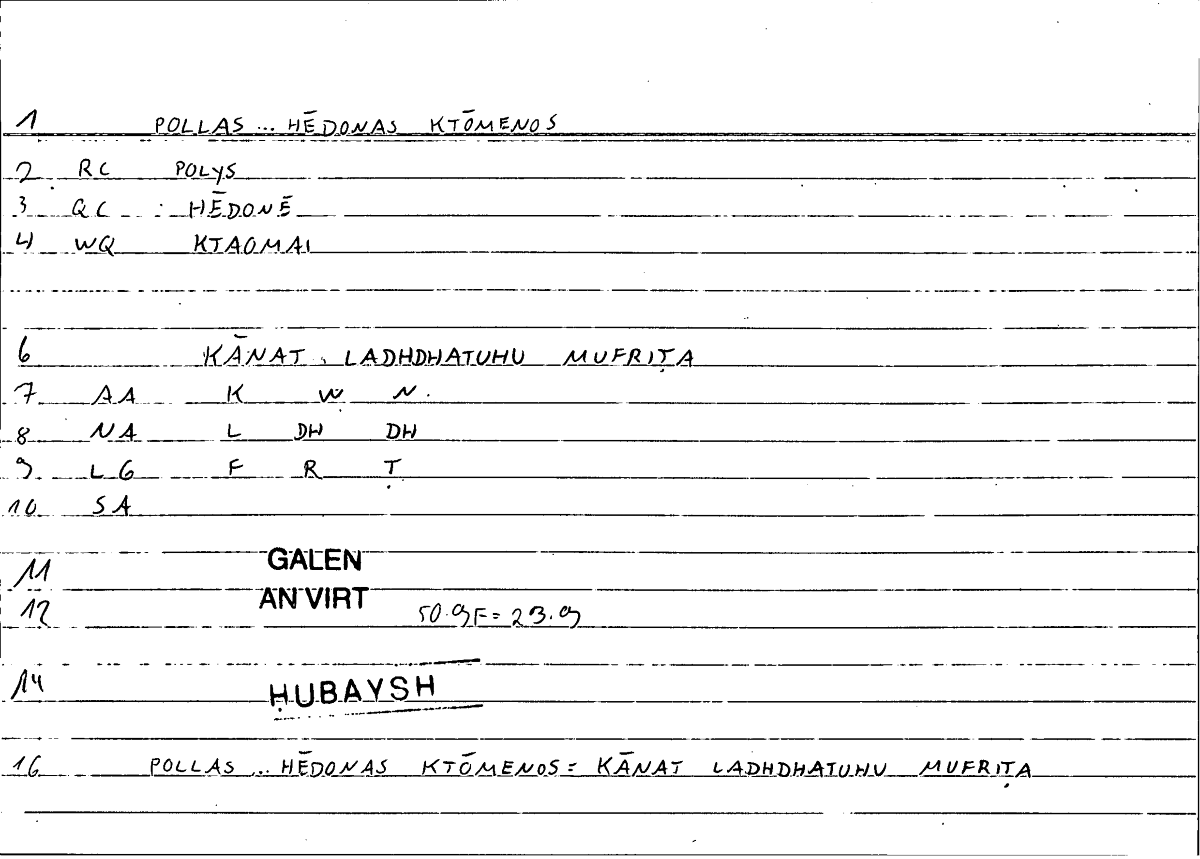 1 POLLAS ... HĒDONAS KTŌMENOS
2 RC POLYS
3 QC HĒDONĒ
4 WQ KTAOMAI
6 KĀNAT LADHDHATUHU MUFRIṬA
7 AA K W N
8 NA L DH DH
9 LG F R Ṭ
10 SA
11 GALEN
12 AN VIRT 50.9F = 23.9
14 ḤUBAYSH
16 POLLAS ... HĒDONAS KTŌMENOS = KĀNAT LADHDHATUHU MUFRIṬA